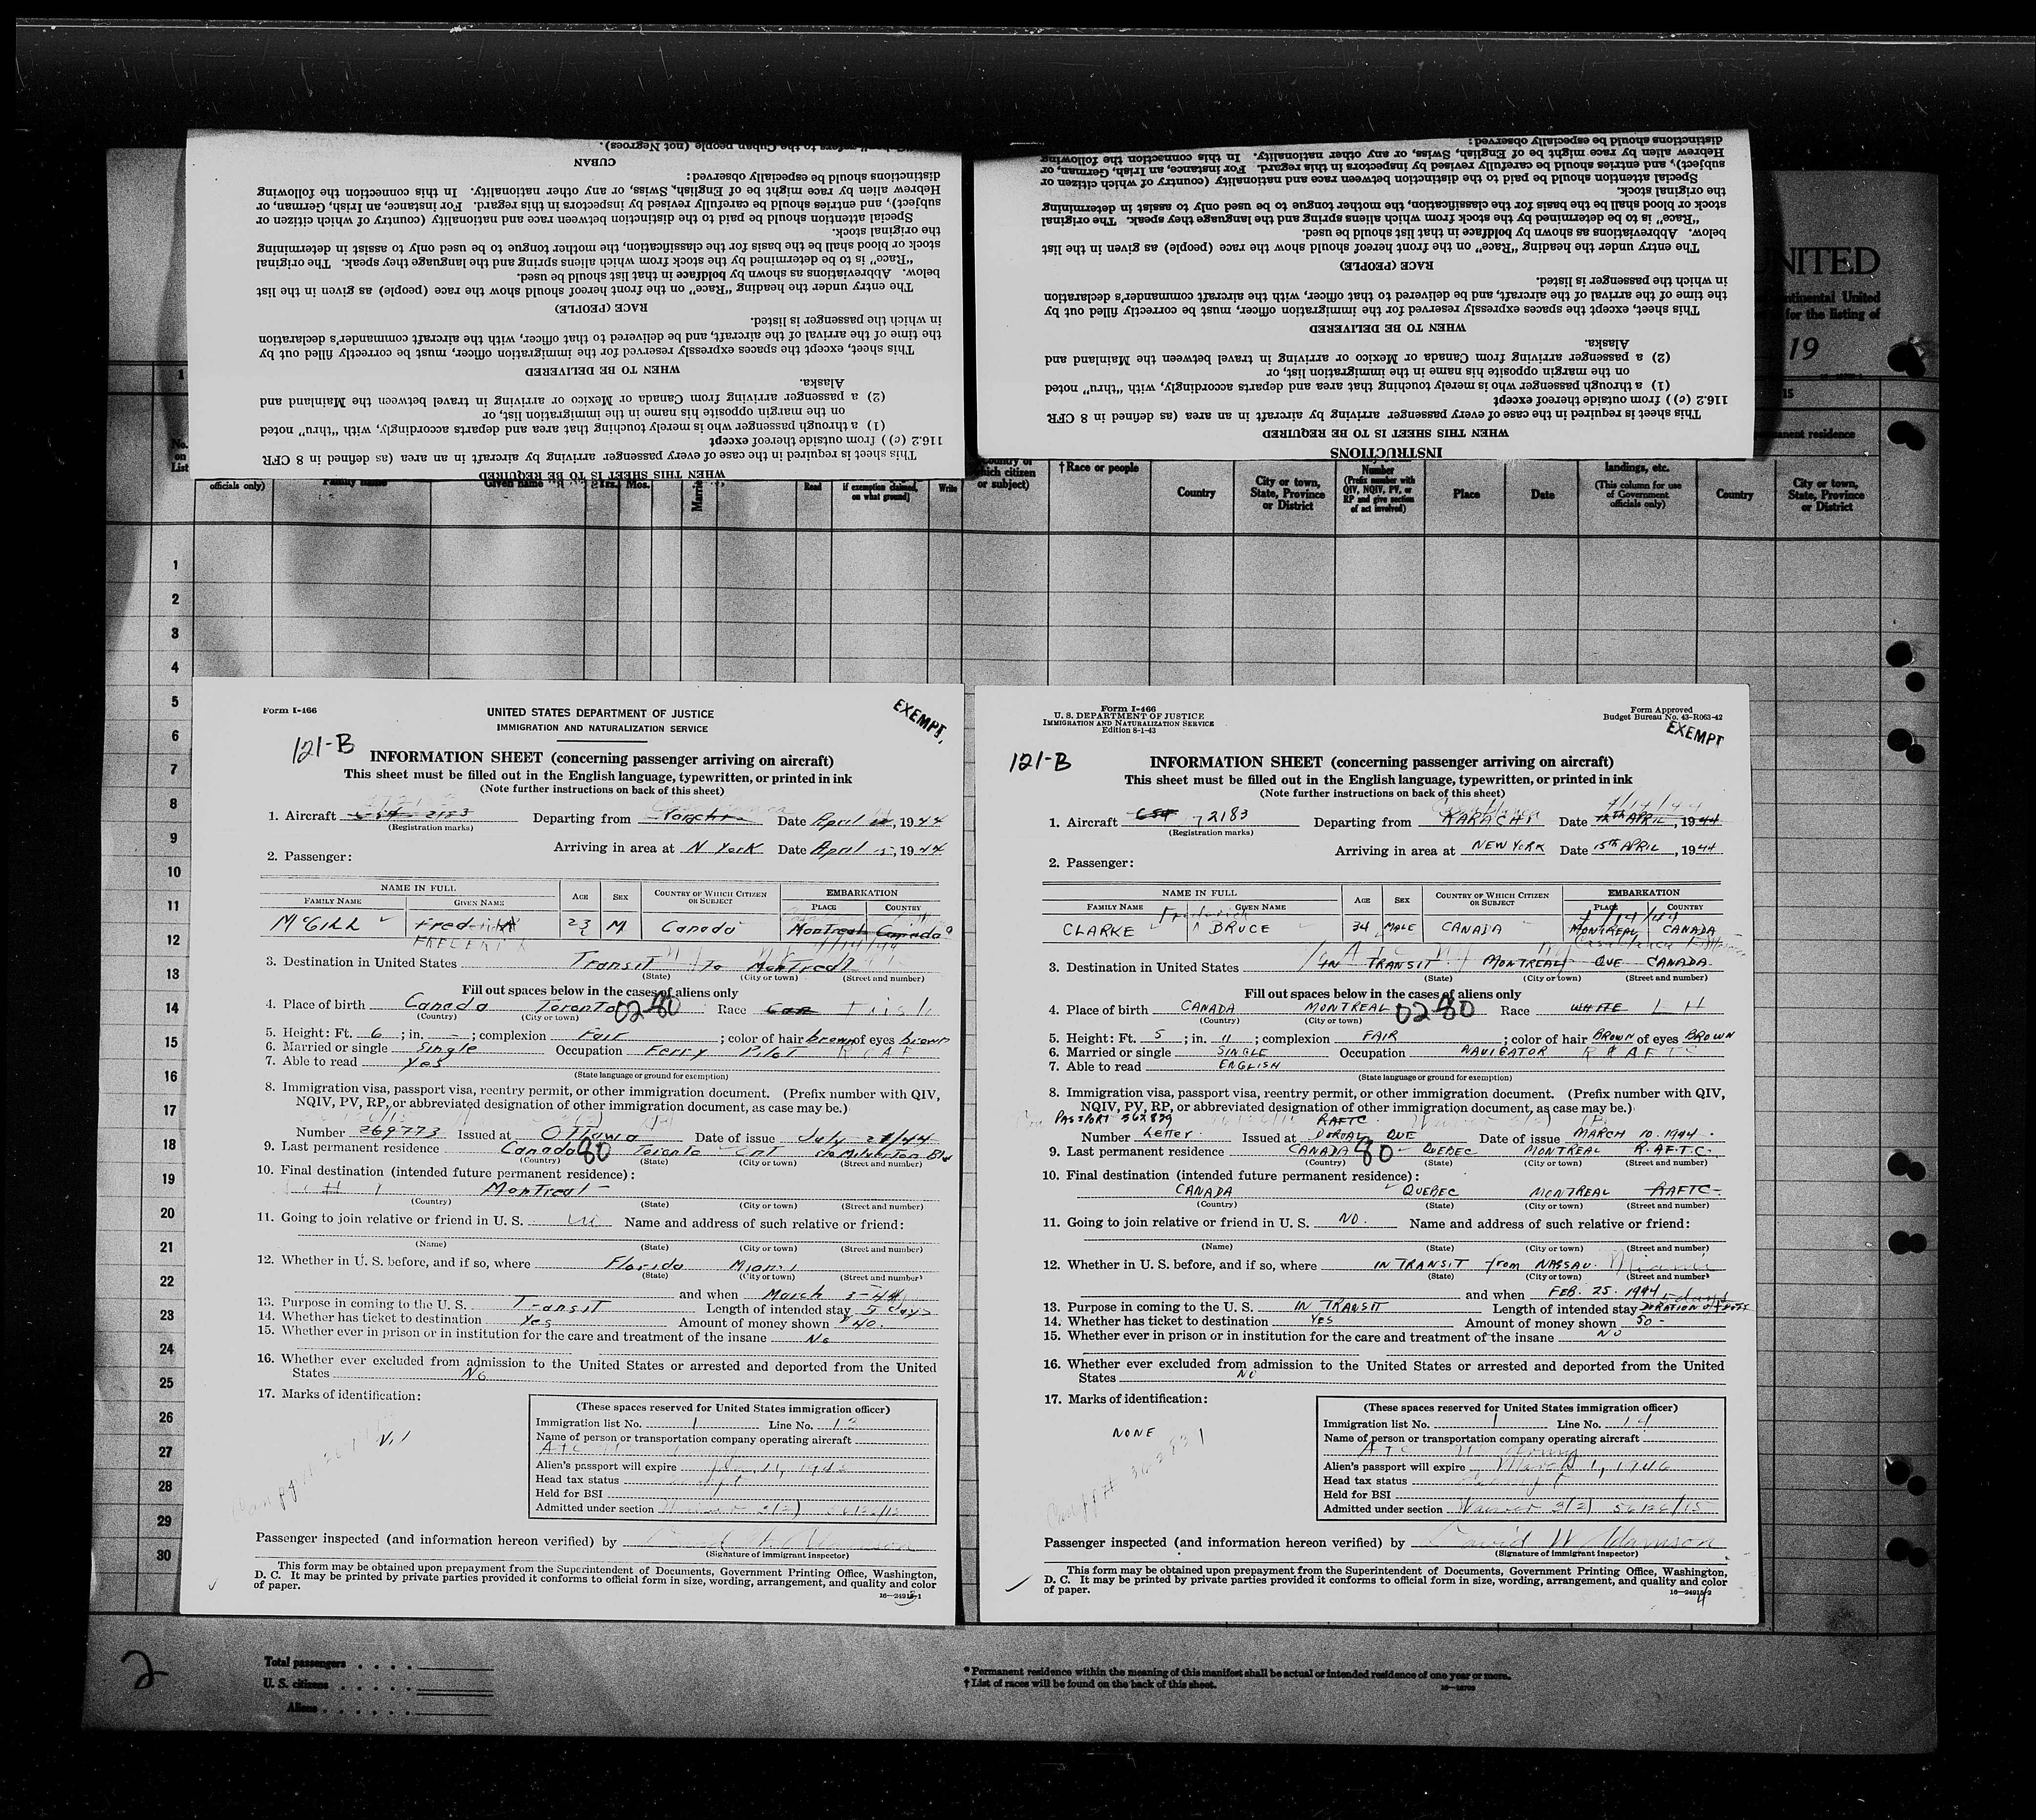 "Cuban" refers to the Cuban people (not Negroes).
CUBAN
distinctions should be especially observed:
Hebrew alien by race might be of English, Swiss, or any other nationality. In this connection the following
subject), and entries should be carefully revised by inspectors in this regard. For instance, an Irish, German, or
Special attention should be paid to the distinction between race and nationality (country of which citizen or
the original stock.
stock or blood shall be the basis for the classification, the mother tongue to be used only to assist in determining
"Race" is to be determined by the stock from which aliens spring and the language they speak. The original
below. Abbreviations as shown by boldface in that list should be used.
The entry under the heading "Race" on the front hereof should show the race (people) as given in the list
RACE (PEOPLE)
in which the passenger is listed.
the time of the arrival of the aircraft, and be delivered to that officer, with the aircraft commander's declaration
This sheet, except the spaces expressly reserved for the immigration officer, must be correctly filled out by
WHEN TO BE DELIVERED
Alaska.
(2) a passenger arriving from Canada or Mexico or arriving in travel between the Mainland and
on the margin opposite his name in the immigration list, or
(1) a through passenger who is merely touching that area and departs accordingly, with "thru" noted
116.2 (c)) from outside thereof except
This sheet is required in the case of every passenger arriving by aircraft in an area (as defined in 8 CFR
WHEN THIS SHEET IS TO BE REQUIRED
distinctions should be especially observed:
Hebrew alien by race might be of English, Swiss, or any other nationality. In this connection the following
subject), and entries should be carefully revised by inspectors in this regard. For instance, an Irish, German, or
Special attention should be paid to the distinction between race and nationality (country of which citizen or
the original stock.
stock or blood shall be the basis for the classification, the mother tongue to be used only to assist in determining
"Race" is to be determined by the stock from which aliens spring and the language they speak. The original
below. Abbreviations as shown by boldface in that list should be used.
The entry under the heading "Race" on the front hereof should show the race (people) as given in the list
RACE (PEOPLE)
in which the passenger is listed.
the time of the arrival of the aircraft, and be delivered to that officer, with the aircraft commander's declaration
This sheet, except the spaces expressly reserved for the immigration officer, must be correctly filled out by
WHEN TO BE DELIVERED
Alaska.
(2) a passenger arriving from Canada or Mexico or arriving in travel between the Mainland and
on the margin opposite his name in the immigration list, or
(1) a through passenger who is merely touching that area and departs accordingly, with "thru" noted
116.2 (c)) from outside thereof except
This sheet is required in the case of every passenger arriving by aircraft in an area (as defined in 8 CFR
WHEN THIS SHEET IS TO BE REQUIRED
INSTRUCTIONS
UNITED
Continental United
for the listing of
19
1
15
permanent residence
No. on List
officials only)
Family name
Given name
Yrs. Mos.
Read
if exemption claimed, on what ground)
Write
which citizen or subject)
† Race or people
Country
City or town, State, Province or District
Number (Prefix number with QIV, NQIV, PV, or RP and give section of act involved)
Place
Date
landings, etc. (This column for use of Government officials only)
Country
City or town, State, Province or District
1
2
3
4
5
6
7
8
9
10
11
12
13
14
15
16
17
18
19
20
21
22
23
24
25
26
27
28
29
30
Form I-466
UNITED STATES DEPARTMENT OF JUSTICE
IMMIGRATION AND NATURALIZATION SERVICE
EXEMPT
121-B
INFORMATION SHEET (concerning passenger arriving on aircraft)
This sheet must be filled out in the English language, typewritten, or printed in ink
(Note further instructions on back of this sheet)
1. Aircraft 2183 Departing from Karachi Date April, 1944
(Registration marks)
Arriving in area at N York Date April 15, 1944
2. Passenger:
NAME IN FULL AGE SEX COUNTRY OF WHICH CITIZEN OR SUBJECT EMBARKATION
FAMILY NAME GIVEN NAME PLACE COUNTRY
McGILL Frederick 23 M Canada Montreal Canada
FREDERICK 4/14/44
3. Destination in United States Transit To Montreal
(State) (City or town) (Street and number)
Fill out spaces below in the cases of aliens only
4. Place of birth Canada Toronto 0280 Race Can Irish
(Country) (City or town)
5. Height: Ft. 6; in. -; complexion Fair; color of hair brown of eyes brown
6. Married or single Single Occupation Ferry Pilot R C A F
7. Able to read Yes
(State language or ground for exemption)
8. Immigration visa, passport visa, reentry permit, or other immigration document. (Prefix number with QIV,
NQIV, PV, RP, or abbreviated designation of other immigration document, as case may be.)
Number 269773 Issued at Ottawa Date of issue July 21/44
9. Last permanent residence Canada 80 Toronto ONT Milverton Blvd
(Country) (State) (City or town) (Street and number)
10. Final destination (intended future permanent residence):
Montreal
(Country) (State) (City or town) (Street and number)
11. Going to join relative or friend in U. S. Name and address of such relative or friend:
(Name) (State) (City or town) (Street and number)
12. Whether in U. S. before, and if so, where Florida Miami
(State) (City or town) (Street and number)
and when March 3-44
13. Purpose in coming to the U. S. Transit Length of intended stay 5 days
14. Whether has ticket to destination Yes Amount of money shown $40.
15. Whether ever in prison or in institution for the care and treatment of the insane No
16. Whether ever excluded from admission to the United States or arrested and deported from the United
States No
17. Marks of identification:
Nil
(These spaces reserved for United States immigration officer)
Immigration list No. 1 Line No. 13
Name of person or transportation company operating aircraft
ATC
Alien's passport will expire
Head tax status
Held for BSI
Admitted under section Waiver 3(2) 56126/15
Passenger inspected (and information hereon verified) by
(Signature of immigrant inspector)
This form may be obtained upon prepayment from the Superintendent of Documents, Government Printing Office, Washington,
D. C. It may be printed by private parties provided it conforms to official form in size, wording, arrangement, and quality and color
of paper.
16—24915-1
Form I-466
U. S. DEPARTMENT OF JUSTICE
IMMIGRATION AND NATURALIZATION SERVICE
Edition 8-1-43
Form Approved
Budget Bureau No. 43-R063-42
EXEMPT
121-B
INFORMATION SHEET (concerning passenger arriving on aircraft)
This sheet must be filled out in the English language, typewritten, or printed in ink
(Note further instructions on back of this sheet)
Casablanca 4/14/44
1. Aircraft 2183 Departing from KARACHI Date 12th APRIL, 1944
(Registration marks)
Arriving in area at NEW YORK Date 15th APRIL, 1944
2. Passenger:
NAME IN FULL AGE SEX COUNTRY OF WHICH CITIZEN OR SUBJECT EMBARKATION
FAMILY NAME GIVEN NAME PLACE COUNTRY
Frederick 4/14/44
CLARKE BRUCE 34 MALE CANADA MONTREAL CANADA
Casablanca
3. Destination in United States IN TRANSIT MONTREAL QUE CANADA
(State) (City or town) (Street and number)
Fill out spaces below in the cases of aliens only
4. Place of birth CANADA MONTREAL 0280 Race WHITE
(Country) (City or town)
5. Height: Ft. 5; in. 11; complexion FAIR; color of hair BROWN of eyes BROWN
6. Married or single SINGLE Occupation NAVIGATOR R A F T C
7. Able to read ENGLISH
(State language or ground for exemption)
8. Immigration visa, passport visa, reentry permit, or other immigration document. (Prefix number with QIV,
NQIV, PV, RP, or abbreviated designation of other immigration document, as case may be.)
PASSPORT 362839 RAFTC
Number Letter Issued at DORVAL QUE Date of issue MARCH 10. 1944
9. Last permanent residence CANADA 80 QUEBEC MONTREAL R.A.F.T.C.
(Country) (State) (City or town) (Street and number)
10. Final destination (intended future permanent residence):
CANADA QUEBEC MONTREAL RAFTC
(Country) (State) (City or town) (Street and number)
11. Going to join relative or friend in U. S. NO. Name and address of such relative or friend:
(Name) (State) (City or town) (Street and number)
12. Whether in U. S. before, and if so, where IN TRANSIT from NASSAU. Miami
(State) (City or town) (Street and number)
and when FEB. 25. 1944
13. Purpose in coming to the U. S. IN TRANSIT Length of intended stay DURATION OF
14. Whether has ticket to destination YES Amount of money shown 50-
15. Whether ever in prison or in institution for the care and treatment of the insane NO
16. Whether ever excluded from admission to the United States or arrested and deported from the United
States NO
17. Marks of identification:
NONE
(These spaces reserved for United States immigration officer)
Immigration list No. 1 Line No. 14
Name of person or transportation company operating aircraft
ATC U.S. Army
Alien's passport will expire March 1, 1946
Head tax status Exempt
Held for BSI
Admitted under section Waiver 3(2) 56126/15
Passenger inspected (and information hereon verified) by David W Adamson
(Signature of immigrant inspector)
This form may be obtained upon prepayment from the Superintendent of Documents, Government Printing Office, Washington,
D. C. It may be printed by private parties provided it conforms to official form in size, wording, arrangement, and quality and color
of paper.
16—24915-2
2
Total passengers
U. S. citizens
Aliens
* Permanent residence within the meaning of this manifest shall be actual or intended residence of one year or more.
† List of races will be found on the back of this sheet.